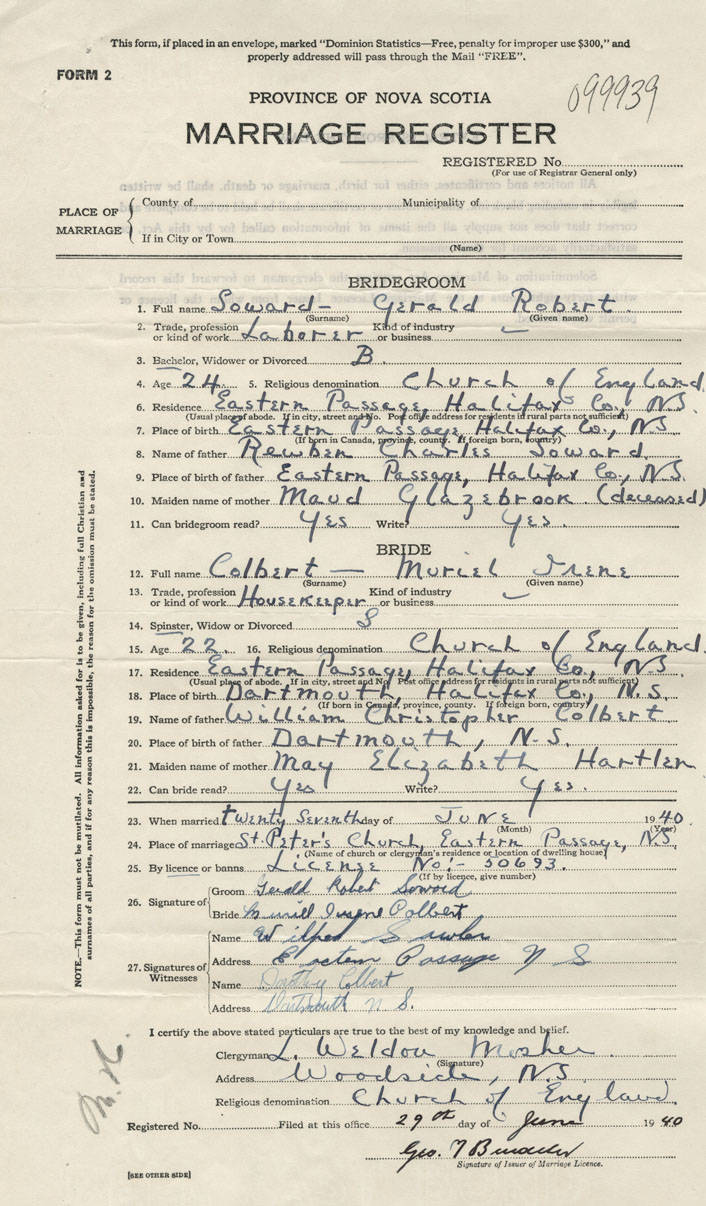 This form, if placed in an envelope, marked "Dominion Statistics—Free, penalty for improper use $300," and
properly addressed will pass through the Mail "FREE".
FORM 2
099939
PROVINCE OF NOVA SCOTIA
MARRIAGE REGISTER
REGISTERED No.
(For use of Registrar General only)
PLACE OF MARRIAGE
County of Municipality of
If in City or Town
(Name)
BRIDEGROOM
1. Full name Soward— Gerald Robert
(Surname) (Given name)
2. Trade, profession or kind of work Laborer Kind of industry or business —
3. Bachelor, Widower or Divorced B.
4. Age 24. 5. Religious denomination Church of England.
6. Residence Eastern Passage, Halifax Co., N.S.
(Usual place of abode. If in city, street and No. Post office address for residents in rural parts not sufficient)
7. Place of birth Eastern Passage, Halifax Co., N.S.
(If born in Canada, province, county. If foreign born, country)
8. Name of father Reuben Charles Soward.
9. Place of birth of father Eastern Passage, Halifax Co., N.S.
10. Maiden name of mother Maud Glazebrook (deceased)
11. Can bridegroom read? Yes Write? Yes.
BRIDE
12. Full name Colbert — Muriel Irene
(Surname) (Given name)
13. Trade, profession or kind of work Housekeeper Kind of industry or business —
14. Spinster, Widow or Divorced S
15. Age 22. 16. Religious denomination Church of England.
17. Residence Eastern Passage, Halifax Co., N.S.
(Usual place of abode. If in city, street and No. Post office address for residents in rural parts not sufficient)
18. Place of birth Dartmouth, Halifax Co., N.S.
(If born in Canada, province, county. If foreign born, country)
19. Name of father William Christopher Colbert
20. Place of birth of father Dartmouth, N.S.
21. Maiden name of mother May Elizabeth Hartlen
22. Can bride read? Yes Write? Yes.
23. When married twenty Seventh day of JUNE 1940.
(Month) (Year)
24. Place of marriage St. Peter's Church, Eastern Passage, N.S.
(Name of church or clergyman's residence or location of dwelling house)
25. By licence or banns License No:- 50693.
(If by licence, give number)
26. Signature of
Groom Gerald Robert Soward
Bride Colbert
27. Signatures of Witnesses
Name
Address Eastern Passage N S
Name Dorothy Colbert
Address Dartmouth N S.
I certify the above stated particulars are true to the best of my knowledge and belief.
Clergyman L. Weldon Mosher
(Signature)
Address Woodside, N.S.
Religious denomination Church of England.
Registered No. Filed at this office 29th day of June 1940
Geo. T
Signature of Issuer of Marriage Licence.
[SEE OTHER SIDE]
NOTE.—This form must not be mutilated. All information asked for is to be given, including full Christian and
surnames of all parties, and if for any reason this is impossible, the reason for the omission must be stated.